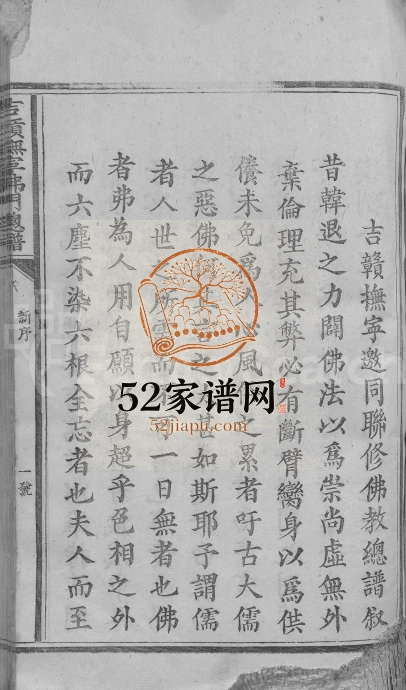 吉贛撫寧邀同聯修佛教總譜叙
昔韓退之力闢佛法以爲崇尚虛無外
棄倫理充其弊必有斷臂臠身以爲供
養未免爲人心風之累者吁古大儒
之惡佛之甚如斯耶予謂儒
者人世所需而不可一日無者也佛
者弗為人用自願以身超乎色相之外
而六塵不染六根全忘者也夫人而至
吉贛撫寧佛門總譜
新序
一號
52家谱网
52jiaph.com